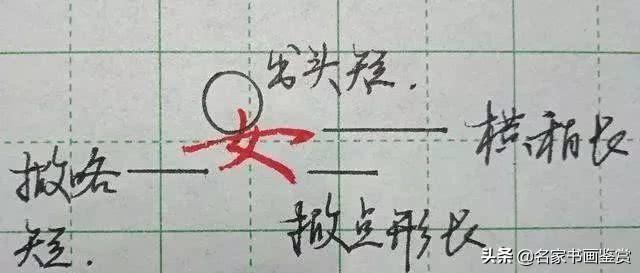 出头短.
女
横稍长
撇略
短.
撇点形长
头条 @名家书画鉴赏